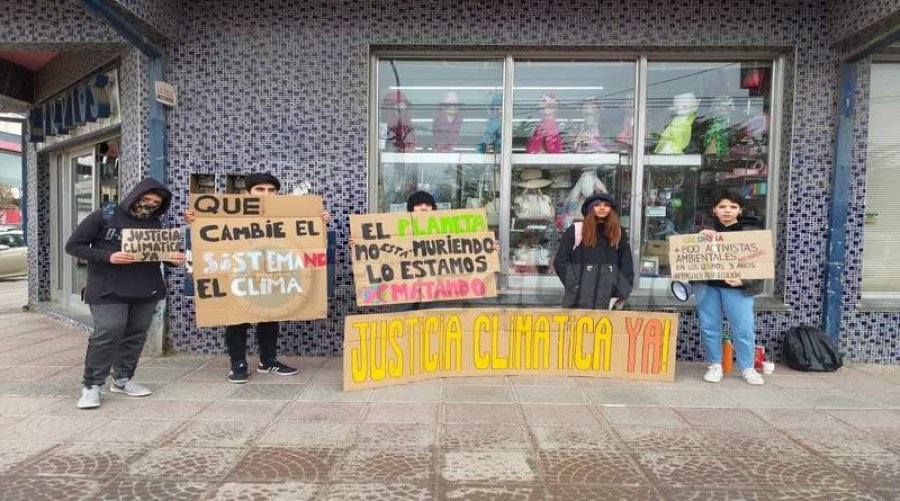 JUSTICIA
CLIMATICA
YA
QUE
CAMBIE EL
SISTEMA NO
EL CLIMA
EL PLANETA
NO ESTA MURIENDO
LO ESTAMOS
MATANDO
JUSTICIA CLIMATICA YA!
+800 ACTIVISTAS
AMBIENTALES
EN LOS ULTIMOS 3 AÑOS